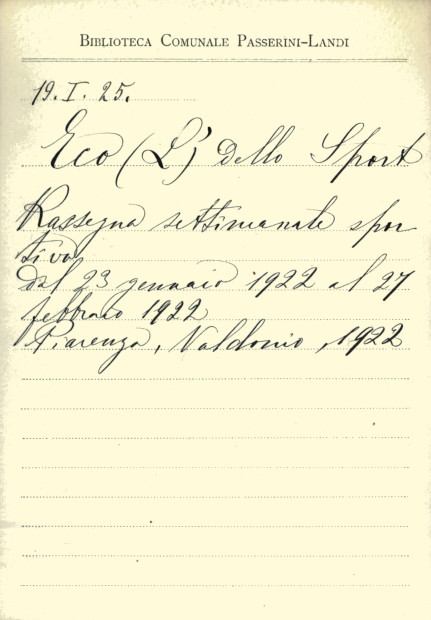 BIBLIOTECA COMUNALE PASSERINI-LANDI
19. I. 25.
Eco (L') dello Sport
Rassegna settimanale spor
tiva
dal 23 gennaio 1922 al 27
febbraio 1922
Piacenza, Valdonio, 1922